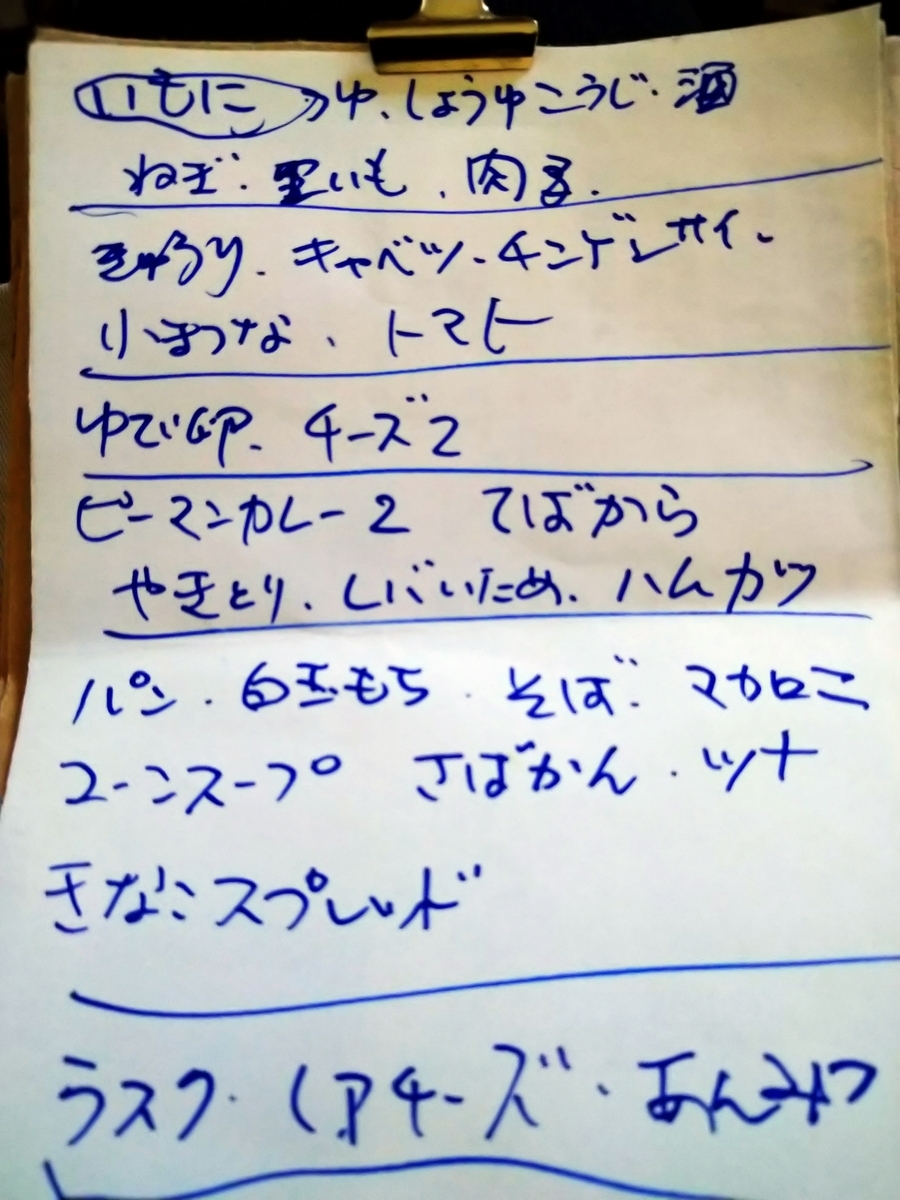 いもに→ゆ、しょうゆこうじ・酒
ねぎ・里いも、肉
きゅうり、キャベツ、チンゲンサイ、
小まつな、トマト
ゆで卵、チーズ2
ピーマンカレー2 てばから
やきとり、レバいため、ハムカツ
パン・白玉もち・そば・マカロニ
コーンスープ さばかん・ツナ
きなこスプレッド
ラスク・レアチーズ・あんみつ